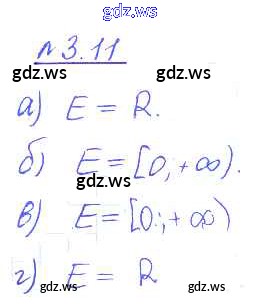 gdz.ws
№3.11
gdz.ws
а) E = R.
gdz.ws
б) E = [0; +∞).
gdz.ws
в) E = [0; +∞)
gdz.ws
г) E = R
gdz.ws